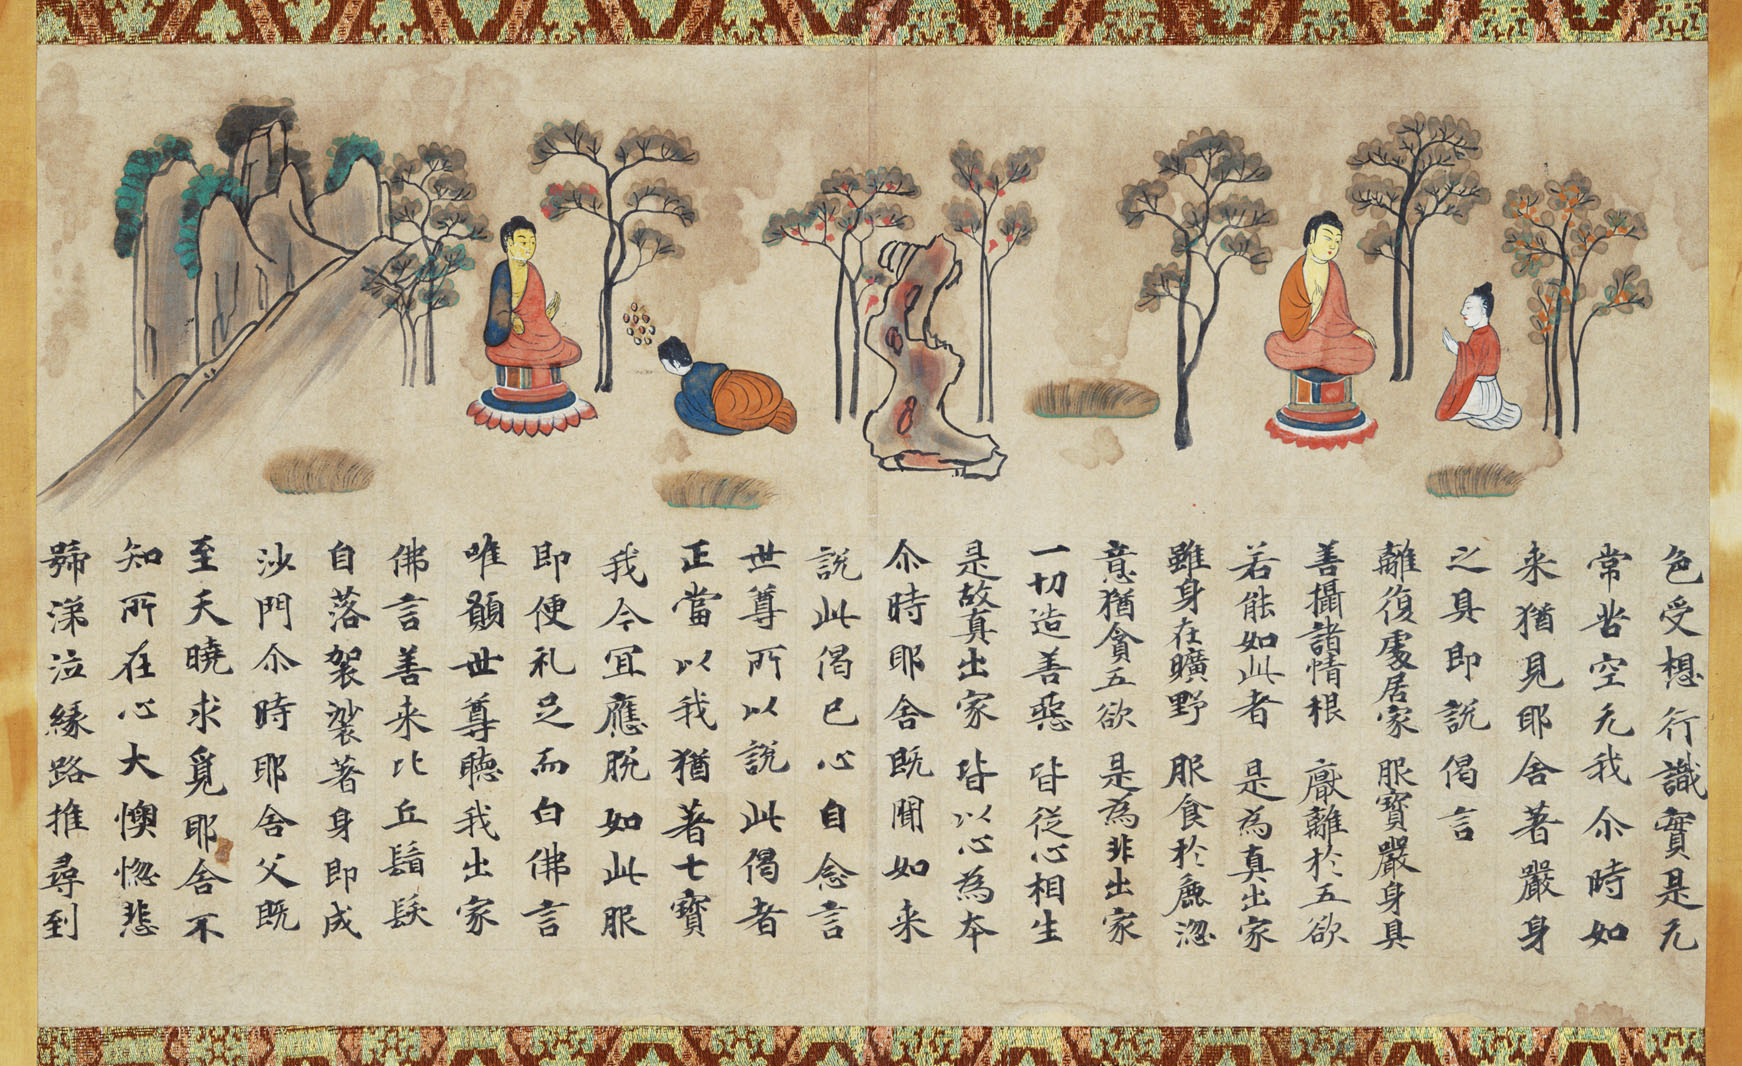 色受想行識實是无
常苦空无我尒時如
来猶見耶舍著嚴身
之具即說偈言
離復處居家 服寶嚴身具
善攝諸情根 厭離於五欲
若能如此者 是為真出家
雖身在曠野 服食於麁澀
意猶貪五欲 是為非出家
一切造善惡 皆従心相生
是故真出家 皆以心為本
尒時耶舍既聞如来
說此偈已心自念言
世尊所以說此偈者
正當以我猶著七寶
我今冝應脫如此服
即便礼足而白佛言
唯願世尊聽我出家
佛言善来比丘鬚髮
自落袈裟著身即成
沙門尒時耶舍父既
至天曉求覓耶舍不
知所在心大懊惚悲
號涕泣緣路推尋到